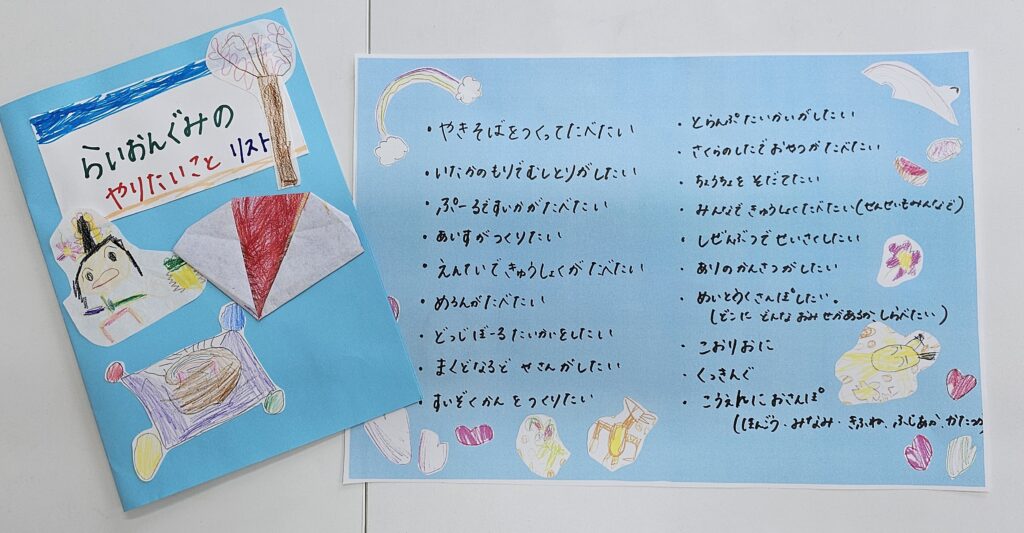 らいおんぐみの
やりたいこと リスト
・やきそばをつくってたべたい
・いたかのもりでむしとりがしたい
・ぷーるですいかがたべたい
・あいすがつくりたい
・えんていできゅうしょくがたべたい
・めろんがたべたい
・どっじぼーるたいかいをしたい
・まくどなるど やさんがしたい
・すいぞくかんをつくりたい
・とらんぷたいかいがしたい
・さくらのしたでおやつがたべたい
・ちょうちょをそだてたい
・みんなできゅうしょくたべたい(せんせいもみんなで)
・しぜんぶつでせいさくしたい
・ありのかんさつがしたい
・めいとうくさんぽしたい。
(どこに どんなおみせがあるか、しらべたい)
・こおりおに
・くっきんぐ
・こうえんにおさんぽ
(ほんごう・みなみ・きふね、ふじあか、かたつ